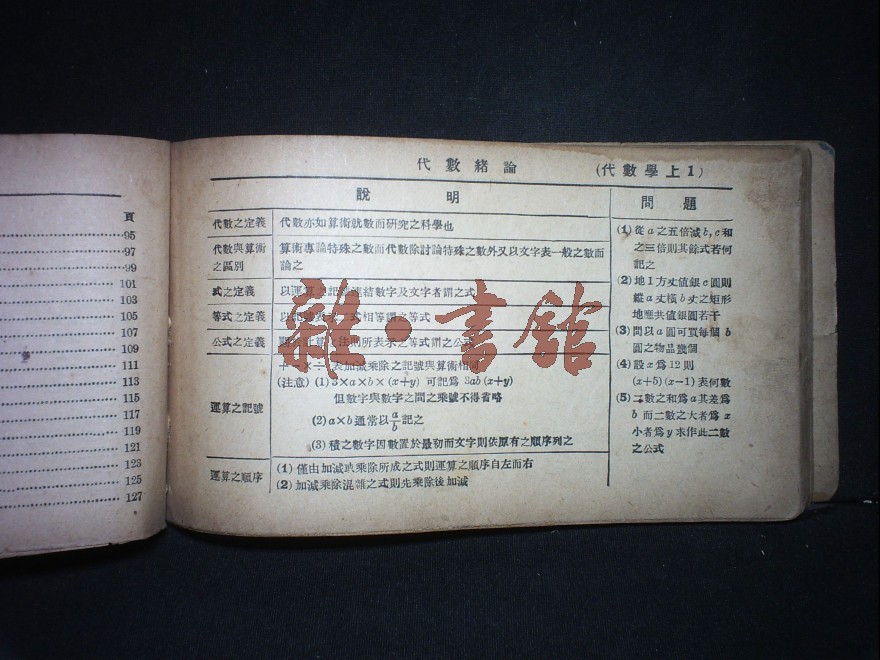 頁
95
97
99
101
103
105
107
109
111
113
115
117
119
121
123
125
127
代數緒論
(代數學上1)
說明
代數之定義
代數亦如算術就數而研究之科學也
代數與算術
之區別
算術專論特殊之數而代數除討論特殊之數外又以文字表一般之數而
論之
式之定義
以運算之記號連結數字及文字者謂之式
等式之定義
相等謂之等式
公式之定義
計算之法則所表示之等式謂之公式
運算之記號
表加減乘除之記號與算術相同
(注意) (1) 3×a×b×(x+y) 可記爲 3ab(x+y)
但數字與數字之間之乘號不得省略
(2) a×b 通常以 a/b 記之
(3) 積之數字因數置於最初而文字則依原有之順序列之
運算之順序
(1) 僅由加減或乘除所成之式則運算之順序自左而右
(2) 加減乘除混雜之式則先乘除後加減
問題
(1) 從 a 之五倍減 b, c 和
之三倍則其餘式若何
記之
(2) 地1方丈値銀 c 圓則
縱 a 丈橫 b 丈之矩形
地應共値銀圓若干
(3) 問以 a 圓可買每個 b
圓之物品幾個
(4) 設 x 爲 12 則
(x+5)(x-1) 表何數
(5) 二數之和爲 a 其差爲
b 而二數之大者爲 x
小者爲 y 求作此二數
之公式
雜·書館